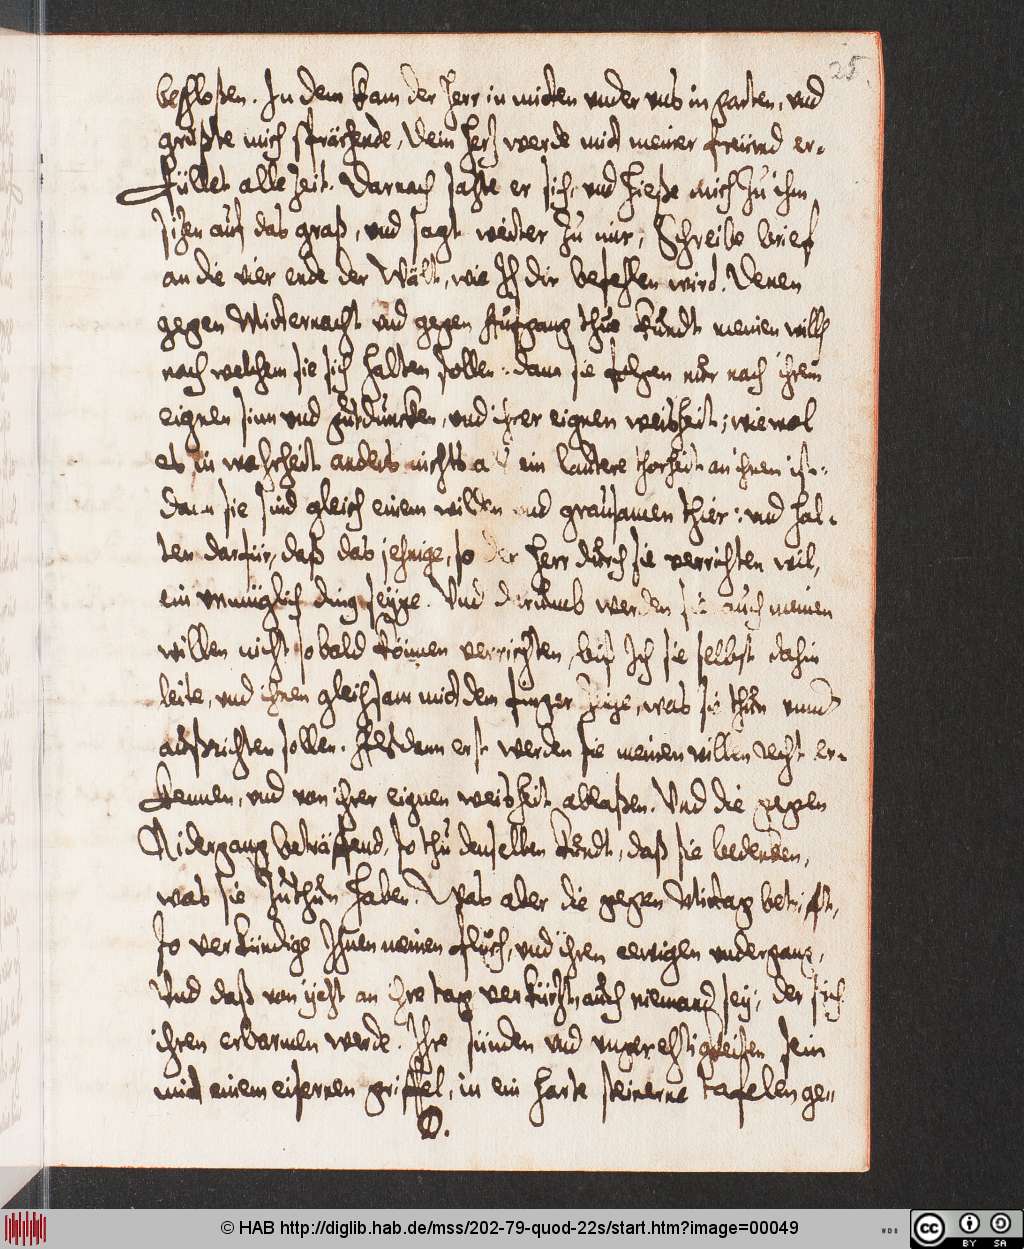 25.
beschloßen. In dem kam der Herr in mitten vnder vns in garten, vnd
grüßte mich sprächende, Dein Hertz werde mit meiner freüwd er-
füllet alle Zeit. Darnach satzte er sich, vnd hieße mich Zu ihm
sizen auf das graß, vnd sagt weiter Zu mir, Schreibe brief
an die vier ende der Wält, wie Ich dir befehlen wird. Denen
gegen Mitternacht vnd gegen Aufgang thue kundt meinen willen
nach welchem sie sich halten sollen: dann sie folgen nur nach ihrem
eignen sinn vnd gutduncken, vnd ihrer eignen weisheit; wiewol
es in wahrheit anders nichts als ein lautere thorheit an ihnen ist:
Dann sie sind gleich einem wilden vnd grausamen thier: vnd hal-
ten darfür, daß das jehnige, so der Herr durch sie verrichten wil,
ein vnmüglich ding seyge. Vnd darumb werden sie auch meinen
willen nicht so bald können verrichten, biß Ich sie selbst dahin
leite, vnd ihnen gleichsam mit dem finger zeige, was sie thun vnnd
außrichten sollen. Alsdann erst werden sie meinen willen recht er-
kennen, vnd von ihrer eignen weisheit ablaßen. Vnd die gegen
Nidergang beträffend, so thu denselben kundt, daß sie bedencken,
was sie Zuthun haben. Was aber die gegen Mittag betrifft,
so verkündige Ihnen meinen fluch, vnd ihren ewigen vndergang,
Vnd daß von ijetzt an ihre tag verkürtzt, auch niemand sey, der sich
ihren erbarmen werde. Ihre sünden vnd vngerechtigkeiten sein
mit einem eisernen griffel, in ein harte steinerne tafelen ge-
D.
© HAB http://diglib.hab.de/mss/202-79-quod-22s/start.htm?image=00049
WDB
cc BY SA